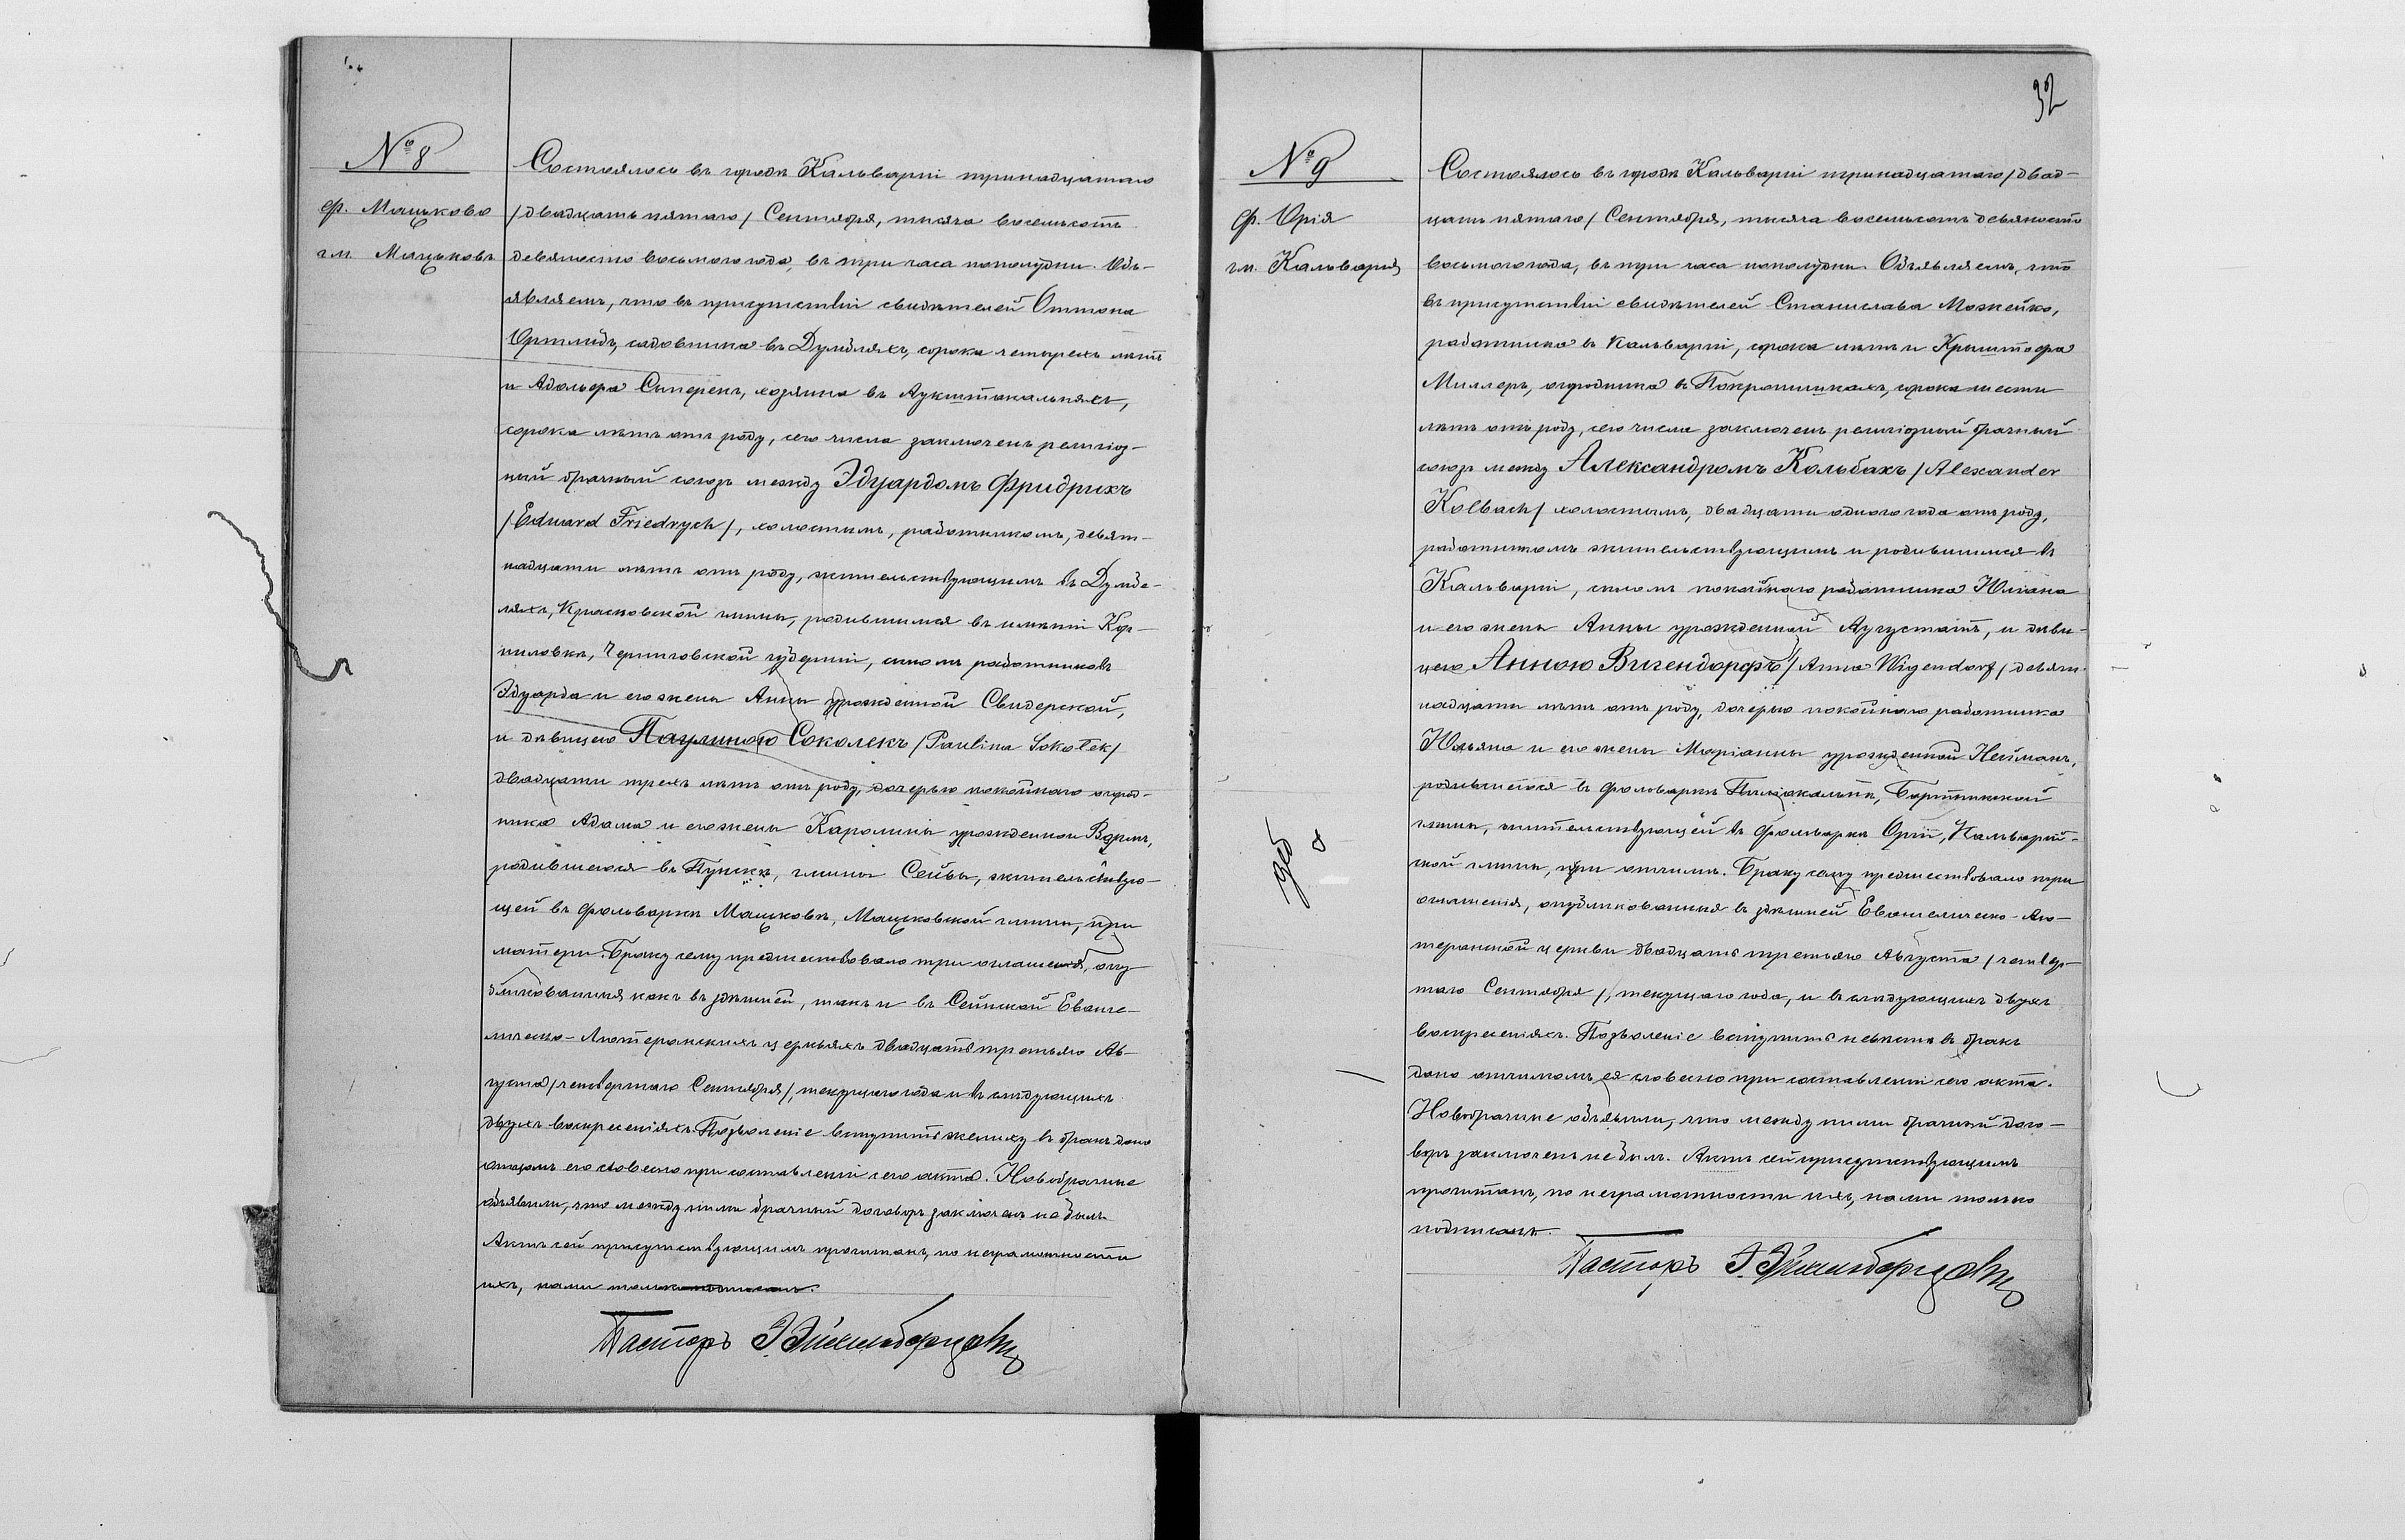 № 8
ф. Мацьково
гм. Мацьковъ
Состоялось въ городѣ Кальваріи тринадцатаго
/двадцать пятаго/ Сентября, тысяча восемьсотъ
девяносто восьмого года, въ три часа пополудни. Объ-
являемъ, что въ присутствіи свидѣтелей Оттона
Ортлидъ, садовника въ Думбляхъ, сорока четырехъ лѣтъ
и Адольфа Сперенъ, хозяина въ Аукштакальняхъ,
сорока лѣтъ отъ роду, сего числа заключенъ религіоз-
ный брачный союзъ между Эдуардомъ Фридрихъ
/Eduard Friedrych/, холостымъ, работникомъ, девят-
надцати лѣтъ отъ роду, жительствующимъ въ Думб-
ляхъ, Красновской гмины, родившимся въ имѣніи
ниловкѣ, Черниговской губерніи, сыномъ работниковъ
Эдуарда и его жены Анны урожденной Свидерской,
и дѣвицею Паулиною Соколекъ /Paulina Sokołek/
двадцати трехъ лѣтъ отъ роду, дочерью покойнаго огород-
ника Адама и его жены Каролины урожденной
родившеюся въ Пунскѣ, гмины Сейвы, жительствую-
щей въ фольваркѣ Мацковѣ, Мацковской гмины, при
матери. Браку сему предшествовало три оглашенія, опу-
бликованныя какъ въ здѣшней, такъ и въ Сейнской Еванге-
лическо-Лютеранскихъ церквяхъ двадцать третьяго Ав-
густа/четвертаго Сентября/, текущаго года и въ слѣдующихъ
двухъ воскресеніяхъ. Позволеніе вступить жениху въ бракъ дано
отцомъ его словесно при составленіи сего акта. Новобрачные
объявили, что между ними брачный договоръ заключенъ не былъ.
Актъ сей присутствующимъ прочитанъ, по неграмотности
ихъ, нами только подписанъ.
Пасторъ
32
№ 9
ф. Орія
гм. Кальварія
Состоялось въ городѣ Кальваріи тринадцатаго/двад-
цать пятаго/ Сентября, тысяча восемьсотъ девяносто
восьмого года, въ три часа пополудни. Объявляемъ, что
въ присутствіи свидѣтелей Станислава Можейко,
работника въ Кальваріи, сорока лѣтъ и Крыштофа
Миллеръ, огородника въ Покрошишкахъ, сорока шести
лѣтъ отъ роду, сего числа заключенъ религіозный брачный
союзъ между Александромъ Кольбахъ /Alexander
Kolbach/ холостымъ, двадцати одного года отъ роду,
работникомъ жительствующимъ и родившимся въ
Кальваріи, сыномъ покойнаго работника Юліана
и его жены Анны урожденной Аугустатъ, и дѣви-
цею Анною Вигендорфъ /Anna Wigendorf/ девят-
надцати лѣтъ отъ роду, дочерью покойнаго работника
Юльяна и его жены Маріанны урожденной Нейманъ,
родившеюся въ фольваркѣ Пилокальнѣ, Бартникской
гмины, жительствующей въ фольваркѣ Оріи, Кальварій-
ской гмины, при отчимѣ. Браку сему предшествовало три
оглашенія, опубликованныя въ здѣшней Евангелическо-Лю-
теранской церкви двадцать третьяго Августа /четвер-
таго Сентября/, текущаго года, и въ слѣдующихъ двухъ
воскресеніяхъ. Позволеніе вступить невѣстѣ въ бракъ
дано отчимомъ ея словесно при составленіи сего акта.
Новобрачные объявили, что между ними брачный дого-
воръ заключенъ не былъ. Актъ сей присутствующимъ
прочитанъ, по неграмотности ихъ, нами только
подписанъ.
Пасторъ